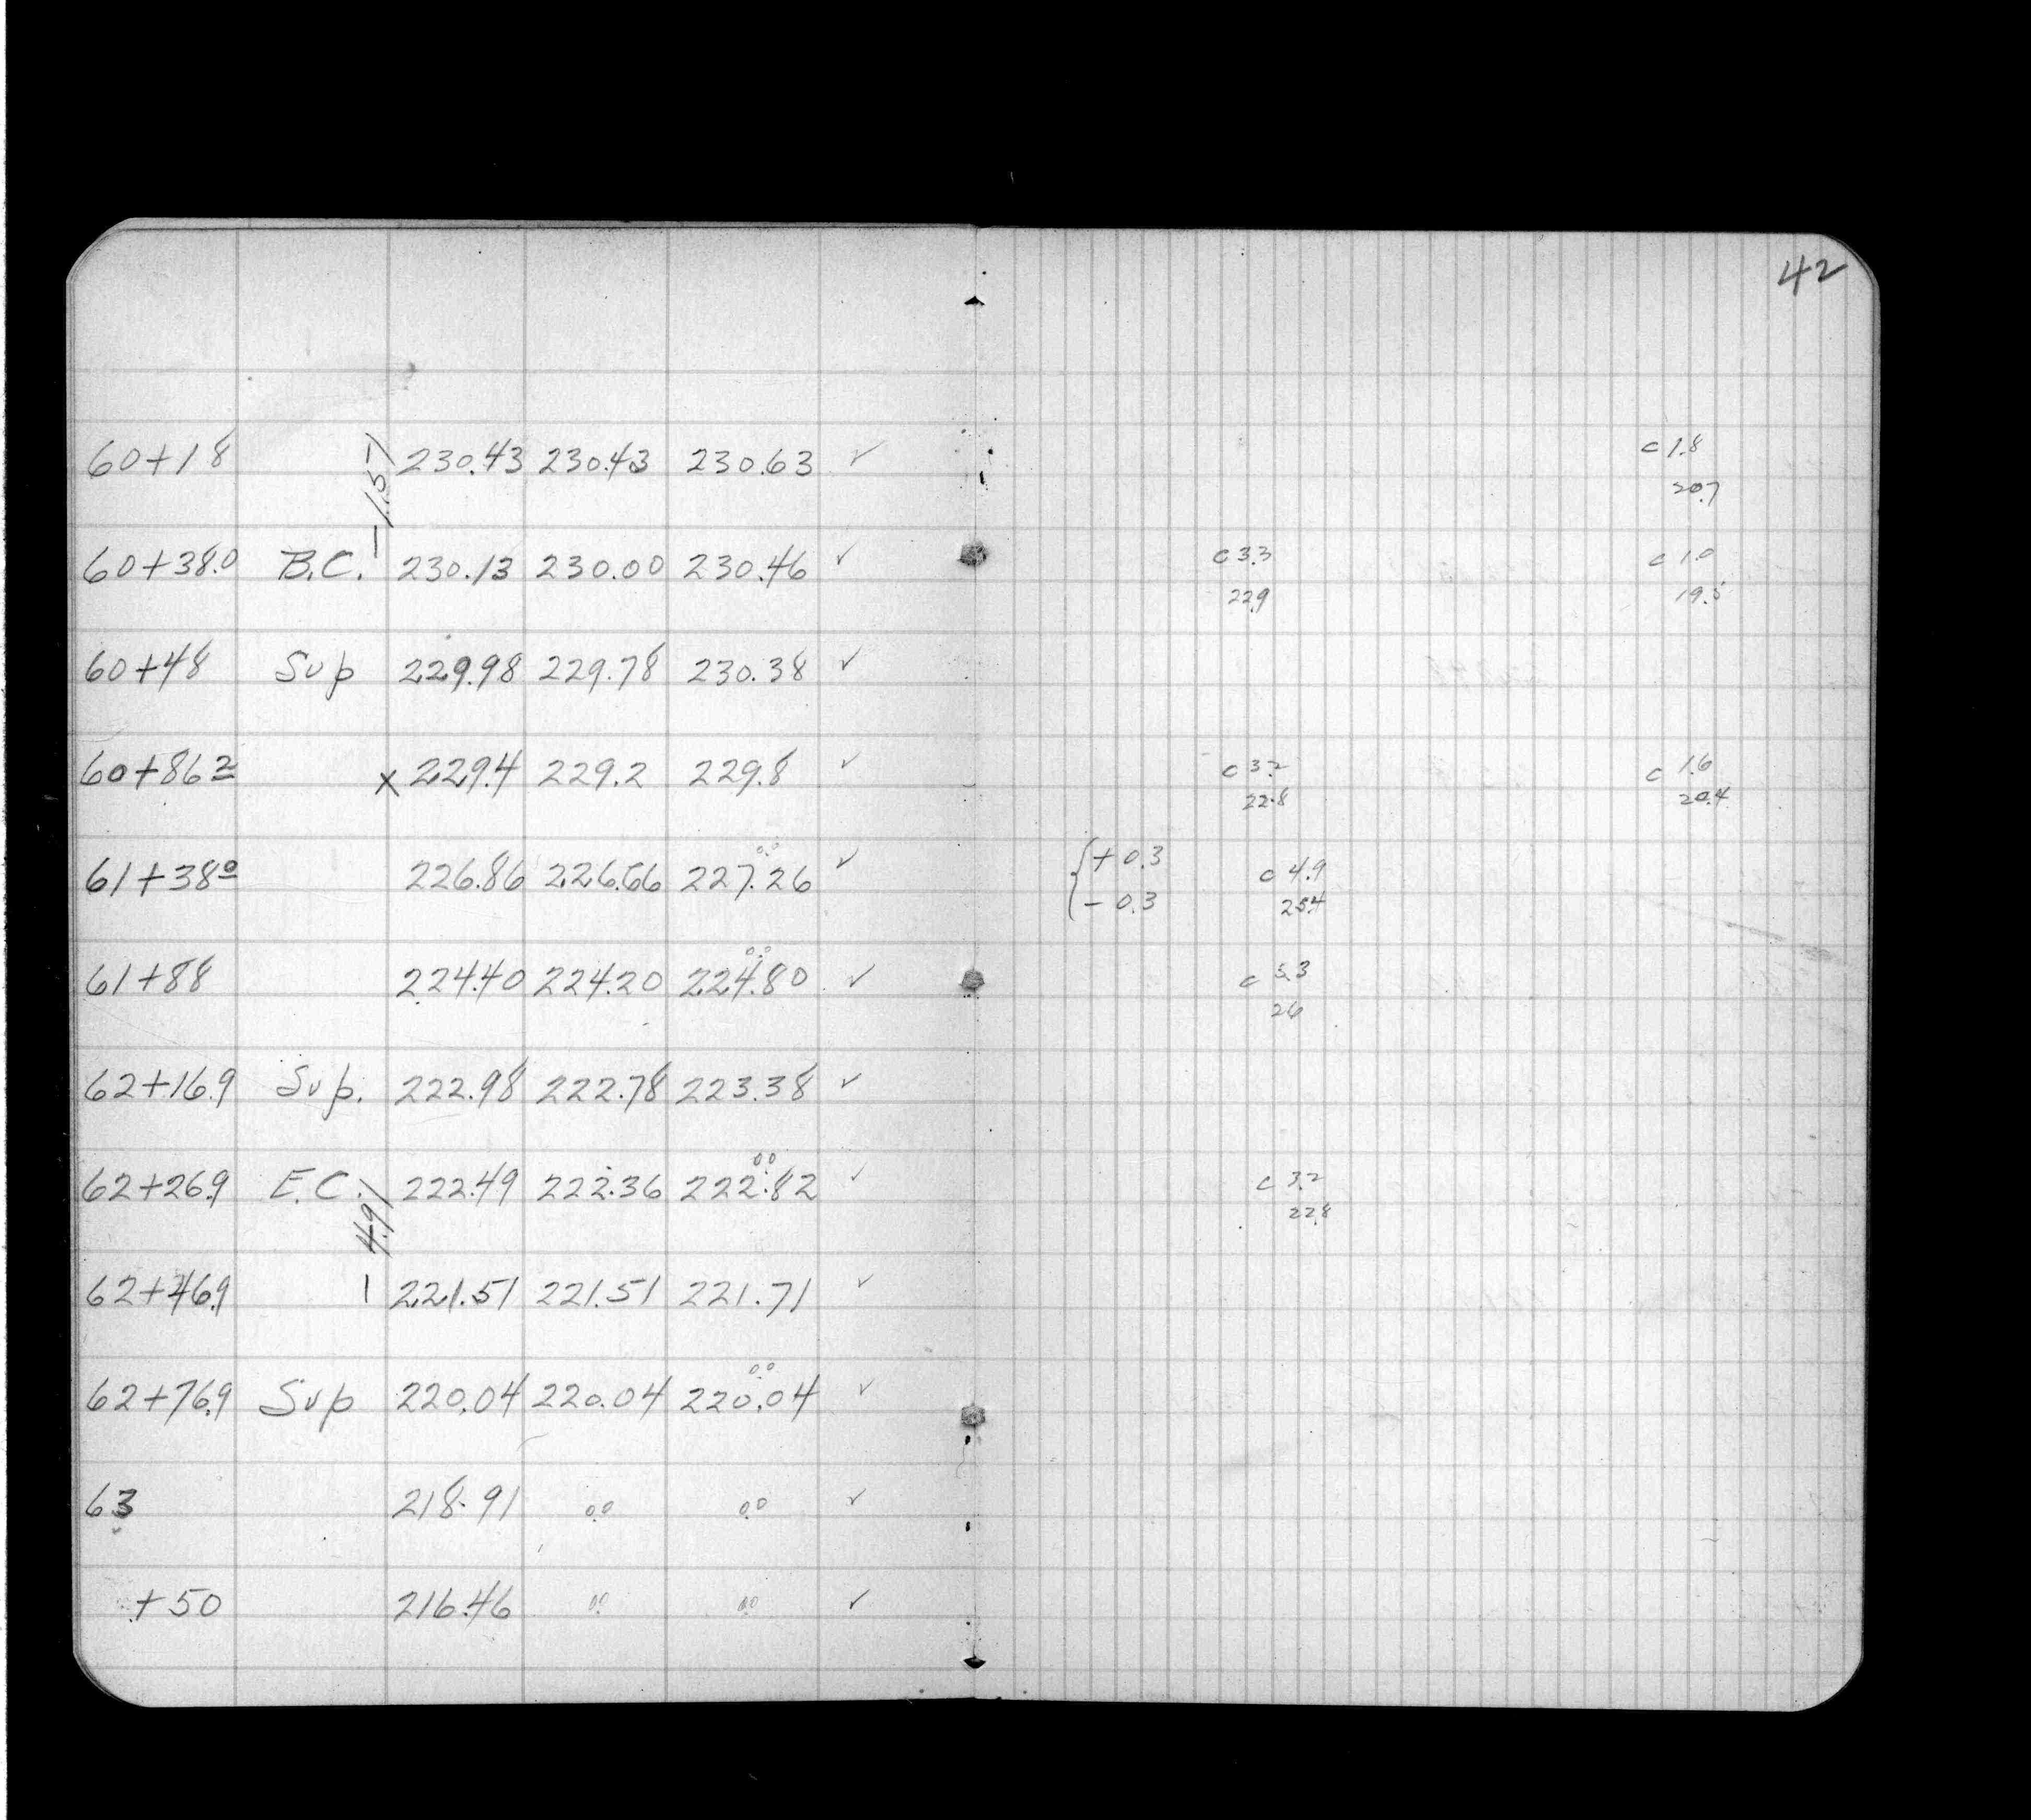 42
60+18 230.43 230.43 230.63 ✓ c 1.8
-1.57 20.7
60+38.0 B.C. 230.13 230.00 230.46 ✓ c 3.3 c 1.0
22.9 19.5
60+48 Sup 229.98 229.78 230.38 ✓
60+86 2 x 229.4 229.2 229.8 ✓ c 3.2 c 1.6
22.8 20.4
0.0 + 0.3
61+38 0 226.86 226.66 227.26 ✓ c 4.9
- 0.3 25.4
0.0
61+88 224.40 224.20 224.80 ✓ c 5.3
26
62+16.9 Sup. 222.98 222.78 223.38 ✓
0.0
62+26.9 E.C. 222.49 222.36 222.82 ✓ c 3.2
-4.91 22.8
62+46.9 221.51 221.51 221.71 ✓
0.0
62+76.9 Sup 220.04 220.04 220.04 ✓
63 218.91 0.0 0.0 ✓
+50 216.46 0.0 0.0 ✓